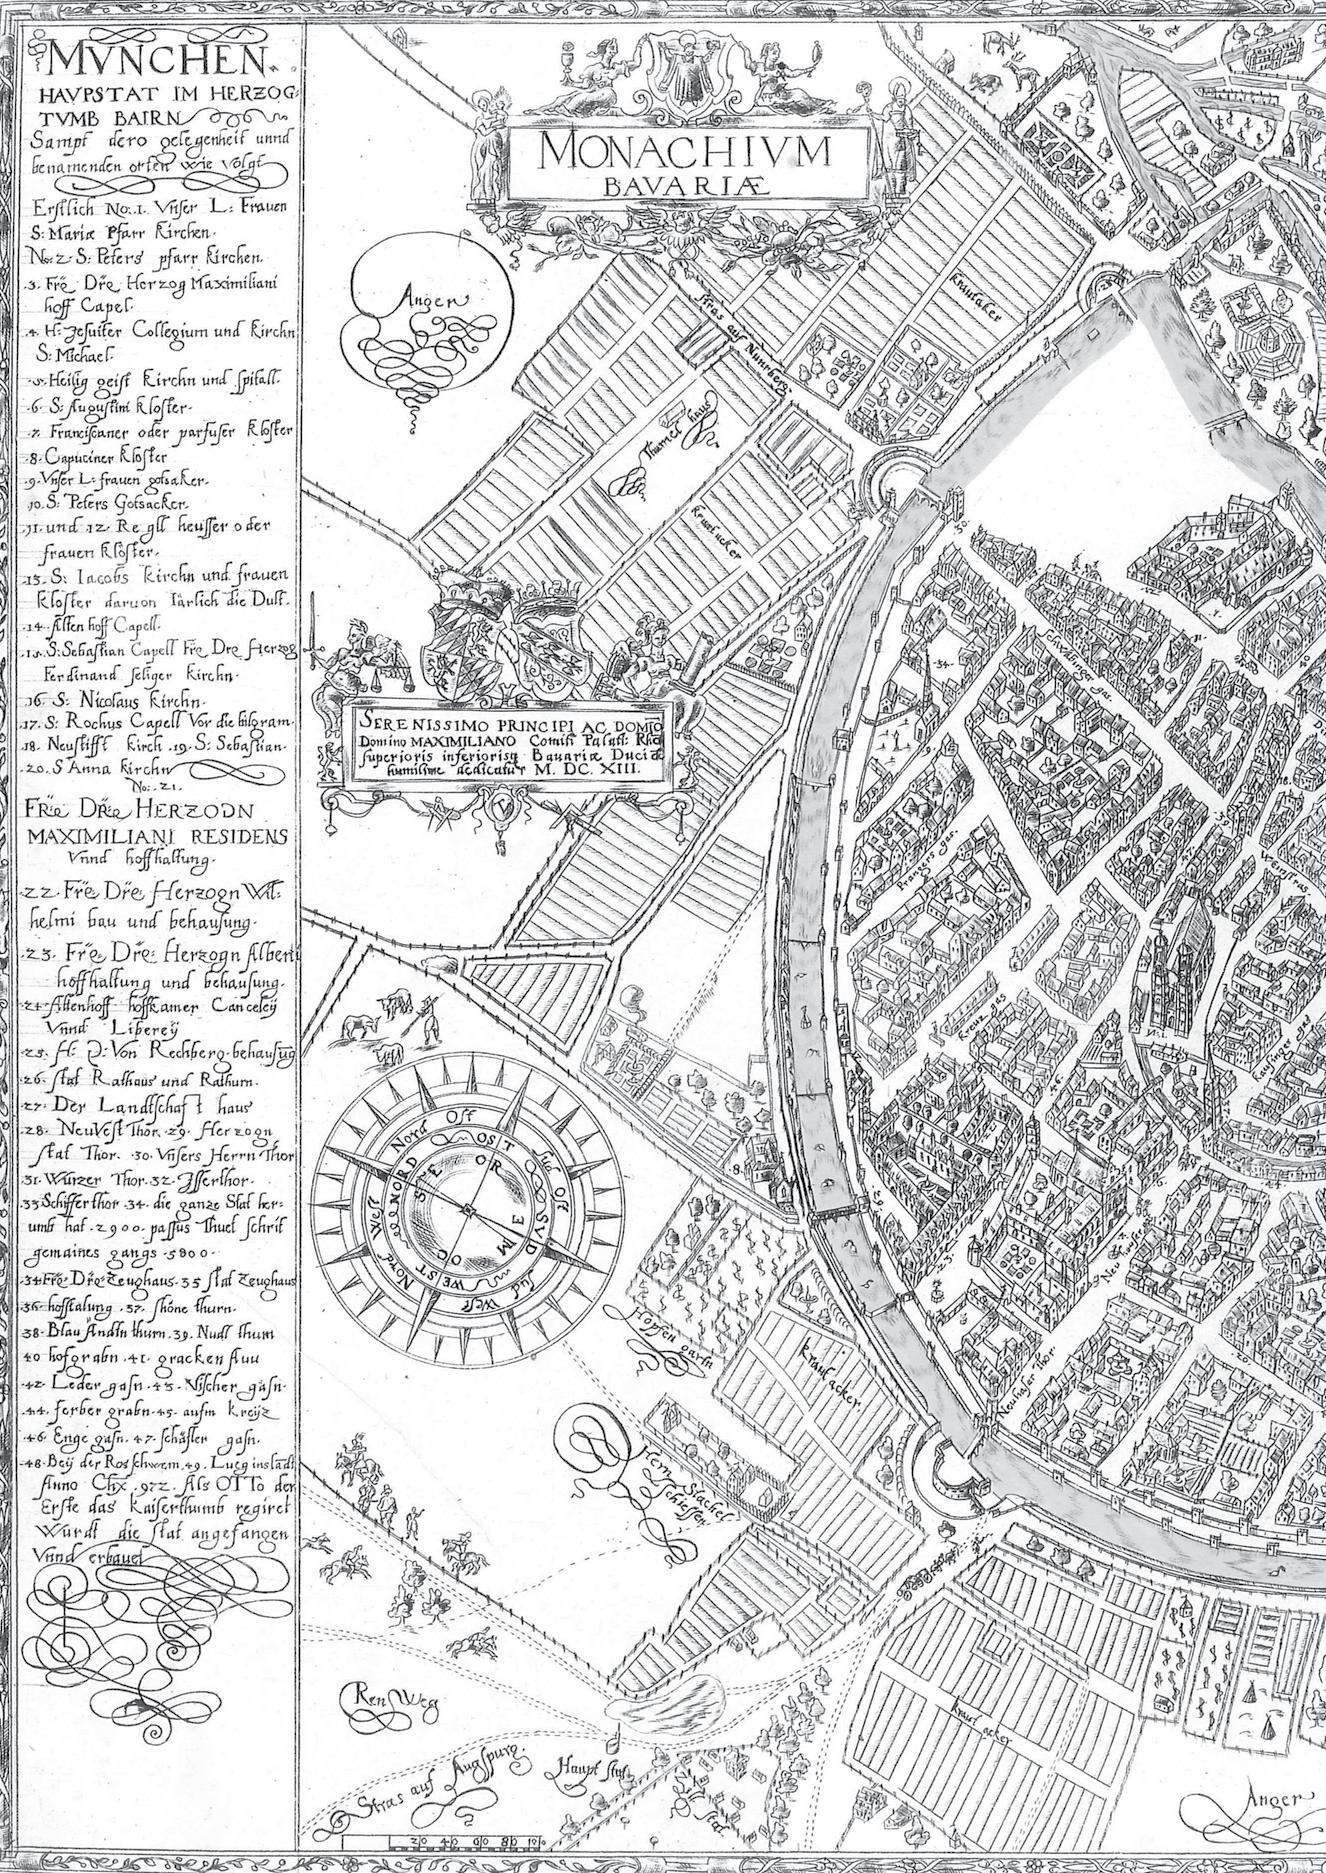 MVNCHEN.
HAVPSTAT IM HERZOG:
TVMB BAIRN
Sampt dero gelegenheit unnd
benamenden orten wie Volgt
Erstlich No: 1. Vnser L: Frauen
S: Mariæ Pfarr Kirchen.
No: 2. S: Peters pfarr kirchen.
.3. Frē Dr̄e Herzog Maximiliani
hoff Capel.
.4. H: Jesuiter Collegium und kirchn
S: Michael.
.5. Heilig geist Kirchn und spitall.
.6. S: Augustini kloster.
.7. Franciscaner oder parfuser kloster
.8. Capuciner kloster
.9. Vnser L: frauen gotsaker.
.10. S: Peters Gotsacker.
.11. und .12. Regll heusser oder
frauen klöster.
.13. S: Iacobs Kirchn und frauen
kloster daruon Iarlich die Dult.
.14. Alten hoff Capell.
.15. S: Sebastian Capell Frē Dre Herzog
Ferdinand seliger kirchn.
.16. S: Nicolaus kirchn.
.17. S: Rochus Capell Vor die bilgram.
.18. Neustifft kirch .19. S: Sebastian.
.20. S Anna kirchn
No: .21.
FR̄e DR̄e HERZOGN
MAXIMILIANI RESIDENS
Vnnd hoffhaltung.
.22. Frē Dr̄e Herzogn Wil:
helmi bau und behausung.
.23. Frē Dr̄e Herzogn Alberti
hoffhaltung und behausung.
.24. Altenhoff hoffkamer Canceleÿ
Vnnd Libereÿ
.25. H: D: Von Rechberg behausūg
.26. stat Rathaus und Rathurn.
.27. Der Landtschaft haus
.28. Neuvest Thor .29. Herzogn
stat Thor. .30. Vnsers Herrn Thor
.31. Wurzer Thor .32. Isserthor.
.33 Schifferthor .34. die ganze Stat her:
umb hat .2900. passus Thuet schrit
gemaines gangs .5800.
.34 Frē Dr̄e Zeughaus .35 stat Zeughaus
.36 hofstalung .37. shöne thurn.
.38. Blau Andtn thurn .39. Nudl thurn
.40 hofgrabn .41. gracken Auu
.42. Leder gasn .43. Vischer gasn.
.44. ferber grabn .45. aufm kreÿz
.46. Enge gasn. 47. schäfler gasn.
.48. Beÿ der Rosschwem .49. Lueg ins latdt
Anno Chr̄ .972. Als OTTo der
Erste das kaiserthumb regiret
Wurdt die stat angefangen
Vnnd erbauet
MONACHIVM
BAVARIÆ
Anger
stras auf Nurnberg
krautaker
Thurner haus
krautacker
SERENISSIMO PRINCIPI AC DOMĪO
Domino MAXIMILIANO Comiti Palati: Rhe
superioris inferiorisq Bauariæ Duci &
humilime dedicatur M. DC. XIII.
.30.
.34.
Schwäbinger gas.
Prangers gas.
Weinstras
Kreuz gas
Kaufinger gas
Neuhauser
Neuhaser Thor
Nord Ost
Sud Ost
Sud West
Nord West
OST
SVD
WEST
NORD
OR
ME
OC
SEPTE
.8.
Hopffen garttn
krautacker
Hern Stachel Schiessen
Ren Weg
Stras auf Augspurg.
Haupt stat
kraut acker
Anger
20 40 60 80 100